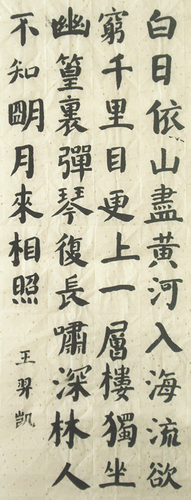 白日依山盡黃河入海流欲
窮千里目更上一層樓獨坐
幽篁裏彈琴復長嘯深林人
不知明月來相照
王羿凱